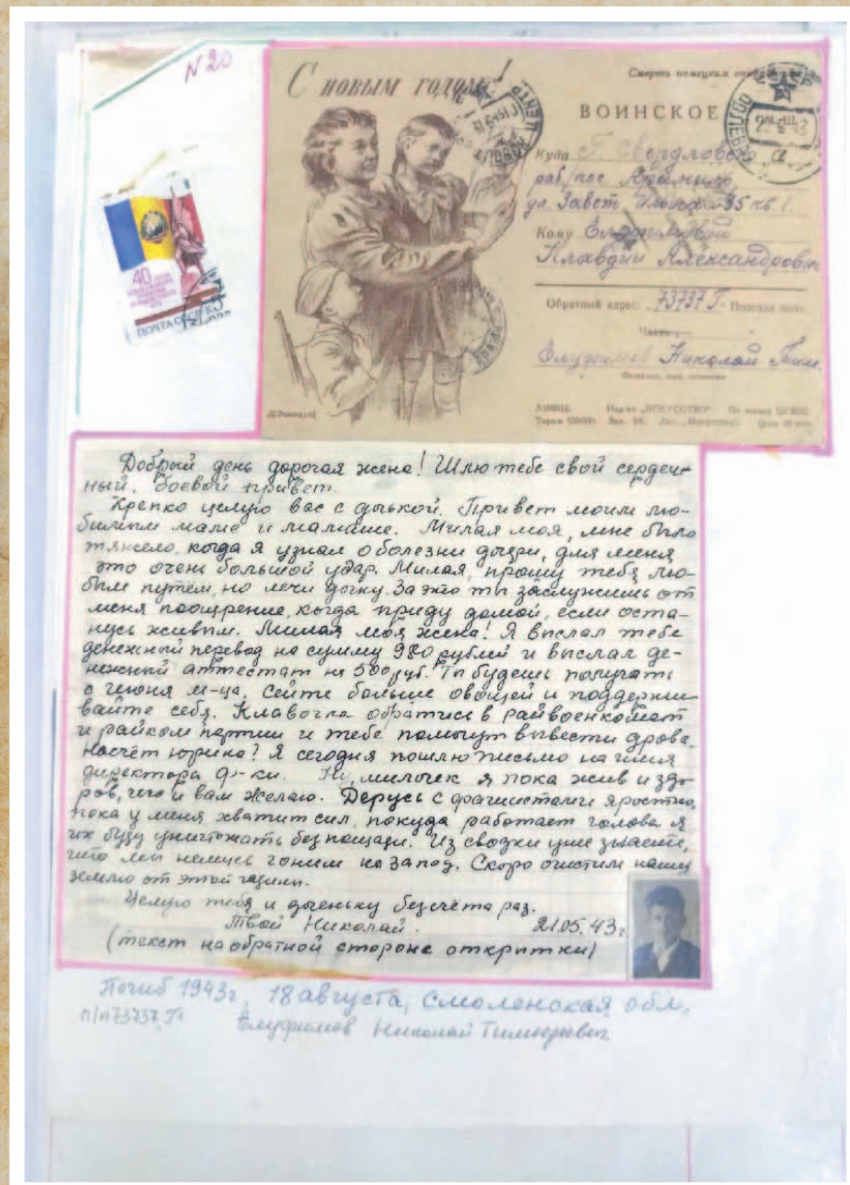 N 20
С НОВЫМ ГОДОМ!
Смерть немецким
ВОИНСКОЕ
Куда г. Свердловск
раб/пос. Арамиль
ул. Завет. Ильича 35 кв. 1.
Кому
Клавдии Александровне
Обратный адрес: 73737 Г. Полевая почт.
Часть
Николай Тим.
Фамилия, имя, отчество
Изд-во „ИСКУССТВО"
40 ЛЕТ
ПОЧТА СССР
Добрый день дорогая жена! Шлю тебе свой сердеч-
ный, боевой привет.
Крепко целую вас с дочкой. Привет моим лю-
бимым маме и мамаше. Милая моя, мне было
тяжело, когда я узнал о болезни дочери, для меня
это очень большой удар. Милая, прошу тебя лю-
бым путём, но лечи дочку. За это ты заслужишь от
меня поощрение, когда приду домой, если оста-
нусь живым. Милая моя жена! Я выслал тебе
денежный перевод на сумму 980 рублей и выслал де-
нежный аттестат на 500 руб. Ты будешь получать
с июня м-ца. Сейте больше овощей и поддержи-
вайте себя. Клавочка обратись в райвоенкомат
и райком партии и тебе помогут вывести дрова.
Насчёт Юрина? Я сегодня пошлю письмо на имя
директора ф-ки. Ну, милочек я пока жив и здо-
ров, чего и вам желаю. Дерусь с фашистами яростно,
пока у меня хватит сил, покуда работает голова я
их буду уничтожать без пощады. Из сводки уже знаете,
что мы немцев гоним на запад. Скоро очистим нашу
землю от этой гадины.
Целую тебя и доченьку без счёта раз.
Твой Николай. 21.05.43г.
(текст на обратной стороне открытки)
Погиб 1943г, 18 августа, Смоленская обл,
п/п 73737 Г
Николай Тимофеевич